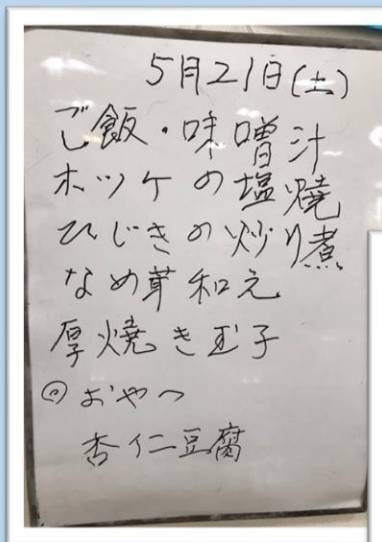 5月21日(土)
ご飯・味噌汁
ホッケの塩焼
ひじきの炒り煮
なめ茸和え
厚焼き玉子
◎おやつ
杏仁豆腐